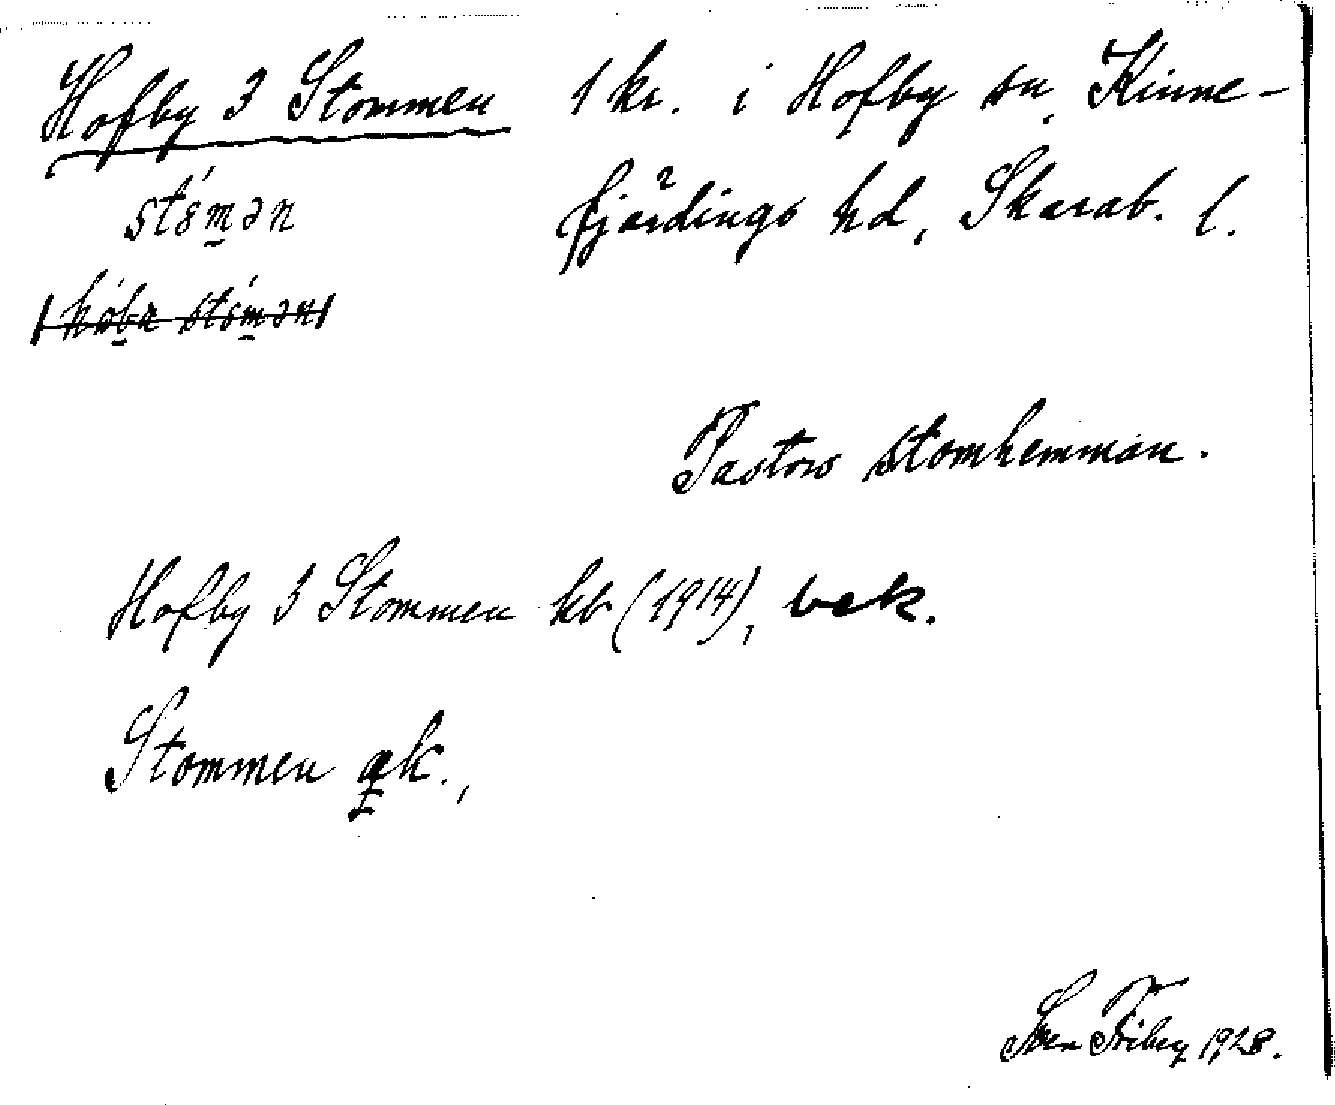 Hofby 3 Stommen 1 kr. i Hofby sn, Kinne-
fjärdings hd, Skarab. l.
stómən
Pastors stomhemman.
Hofby 3 Stommen kb (1914), bek.
Stommen gk.,
Sven Friberg 1928.